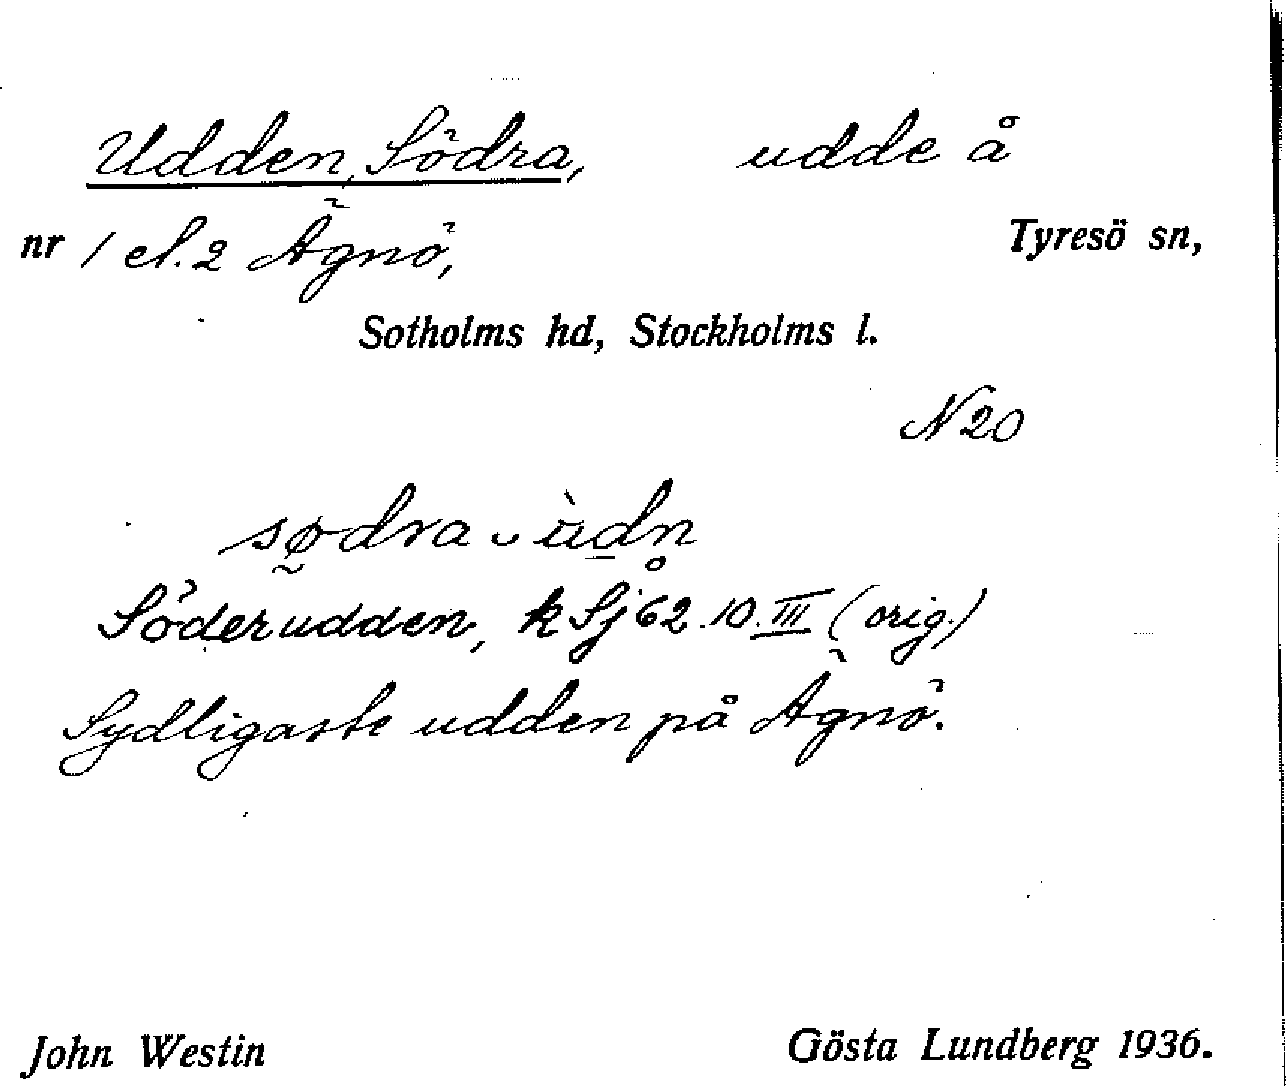 Udden, Södra, udde å
nr 1 el. 2 Ägnö, Tyresö sn,
Sotholms hd, Stockholms l.
N20
sø̰dra ‿ ùd̲n̥
Söderudden, k Sj 62.10.III (orig.)
Sydligaste udden på Ägnö.
John Westin Gösta Lundberg 1936.